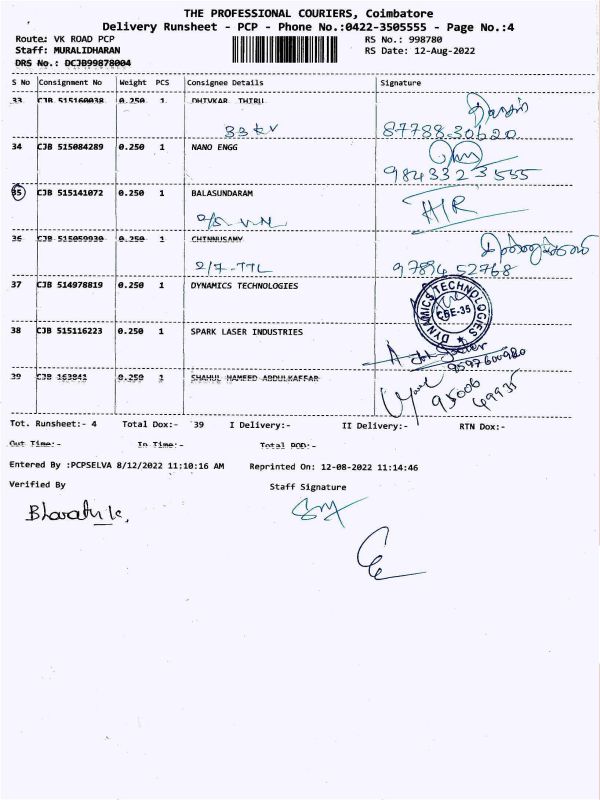 THE PROFESSIONAL COURIERS, Coimbatore
Delivery Runsheet - PCP - Phone No.:0422-3505555 - Page No.:4
Route: VK ROAD PCP RS No.: 998780
Staff: MURALIDHARAN RS Date: 12-Aug-2022
DRS No.: DCJB99878004
S No Consignment No Weight PCS Consignee Details Signature
33 CJB 515160038 0.250 1 DHIVKAR THIRU
33 KV 87788-30620
34 CJB 515084289 0.250 1 NANO ENGG
9843323555
35 CJB 515141072 0.250 1 BALASUNDARAM
H/R
36 CJB 515059930 0.250 1 CHINNUSAMY
2/7-TTL 97894 52768
37 CJB 514978819 0.250 1 DYNAMICS TECHNOLOGIES
DYNAMICS TECHNOLOGIES
CBE-35
38 CJB 515116223 0.250 1 SPARK LASER INDUSTRIES
9597600980
39 CJB 163841 0.250 1 SHAHUL HAMEED ABDULKAFFAR
95006
49935
Tot. Runsheet:- 4 Total Dox:- 39 I Delivery:- II Delivery:- RTN Dox:-
Out Time:- In Time:- Total POD:-
Entered By :PCPSELVA 8/12/2022 11:10:16 AM Reprinted On: 12-08-2022 11:14:46
Verified By Staff Signature